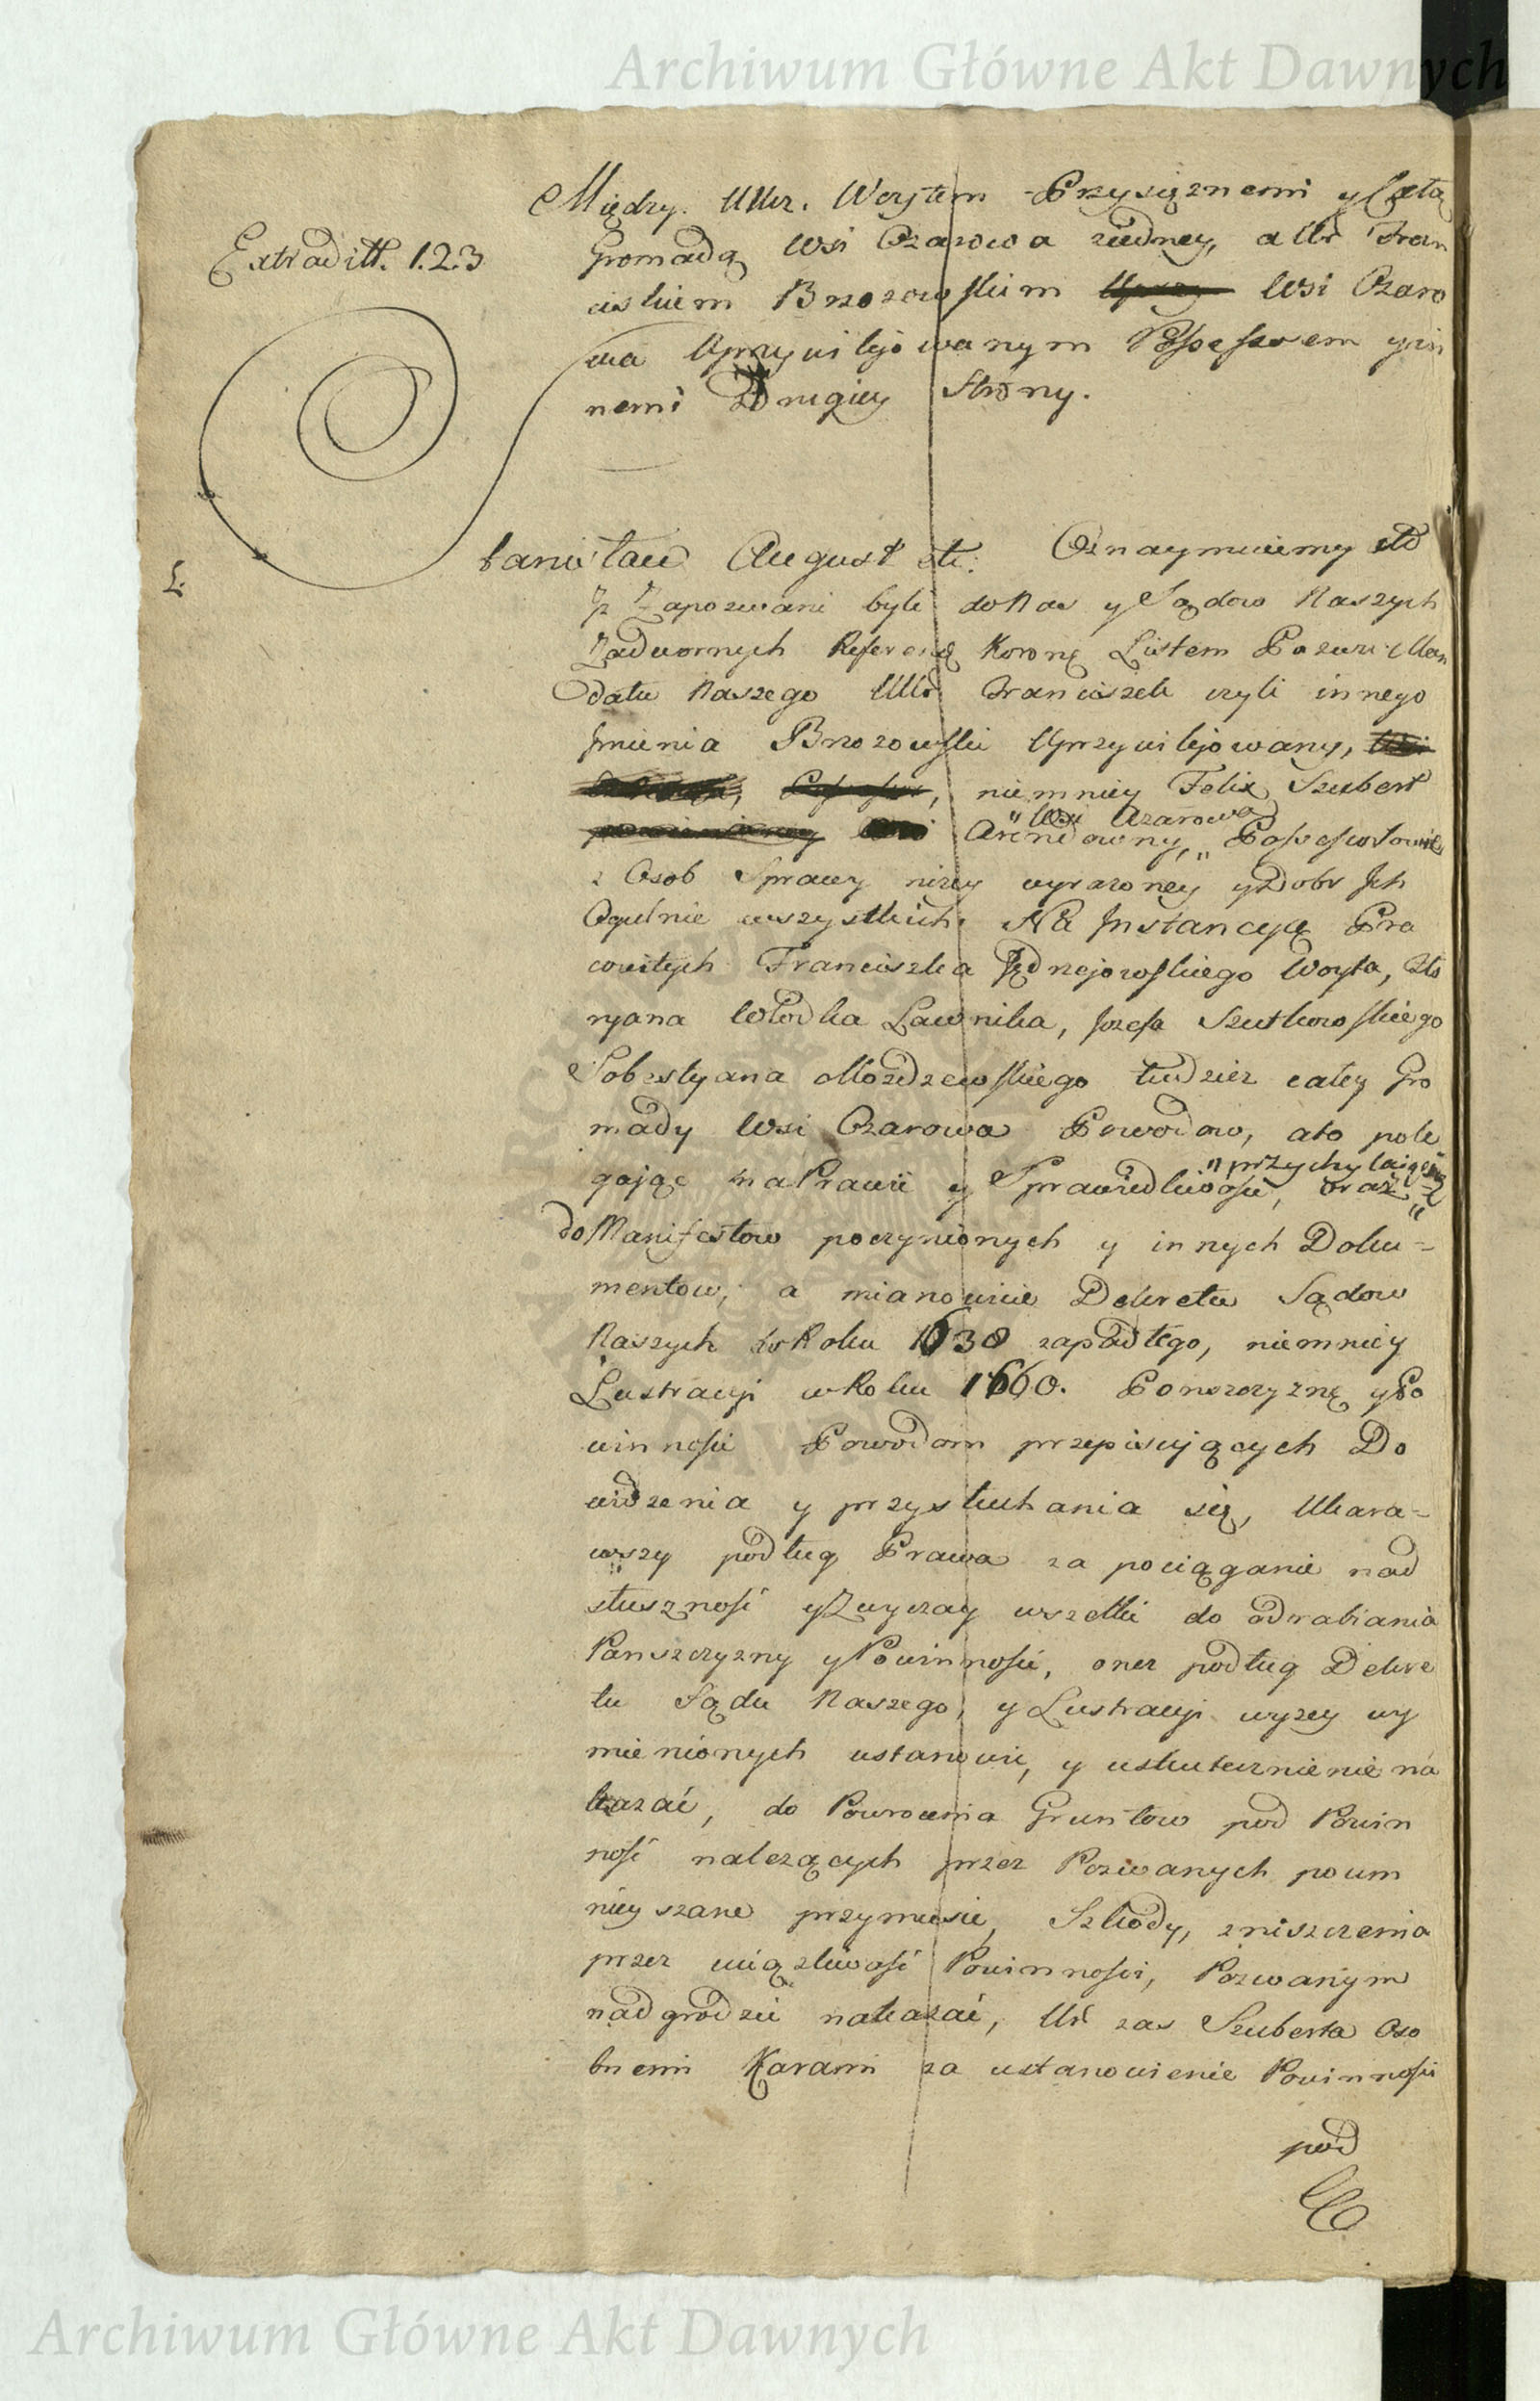 Archiwum Główne Akt Dawnych
Między. UUcz. Woytem Przysięznemi y Całą
Extraditt. 1.2.3
Gromadą Wsi Czarowa ziedney, a Ur Fran
ciszkiem Brzozowskim Wsi Czaro
wa Uprzywilejowanym Possessorem y in
nemi Drugiey Strony.
Stanisław August etc. Oznaymuiemy etc
Iz Zapozwani byli do Nas y Sądow Naszych
Zadwornych Referend Koronę Listem Pozwu i Man
datu Naszego UUr Franciszek czyli innego
Jmienia Brzozowski Uprzywilejowany,
niemniey Felix Szubert
" Wsi Czarowa
Arendowny, " Possessorowie
z Osob Sprawy nizey wyrazoney y Dobr Jch
Ogulnie wszystkich. Na Jnstancyę Pra
cowitych Franciszka Jędrzejowskiego Woyta, Flo
ryana Włodka Ławnika, Jozefa Szutkowskiego
Sobestyana Mozdzewskiego tudziez całey Gro
mady Wsi Czarowa Powodow, ato pole
" przychylaiąc się
gając na Prawie y Sprawiedliwości, oraz "
do Manifestow poczynionych y innych Doku=
mentow, a mianowicie Dekretu Sądow
Naszych w Roku 1638 zapadłego, niemniey
Lustracyi w Roku 1660. Ponszczyznę y Po
winności Powodom przepisujących Do
widzenia y przysłuchania się, Ukara=
wszy podług Prawa za pociąganie nad
słuszność y Zwyczay wszelki do odrabiania
Panszczyzny y Powinności, onez podług Dekre
tu Sądu Naszego, y Lustracyi wyzey wy
mienionych ustanowić, y uskutecznienie na
kazać, do Powrocenia Gruntow pod Powin
ność nalezących przez Pozwanych poum
nieyszane przymusić, Szkody, zniszczenia
przez uciązliwość Powinności, Pozwanym
nadgrodzić nakazać, Ur zas Szuberta Oso
bnemi Karami za ustanowienie Powinności
pod
Archiwum Główne Akt Dawnych